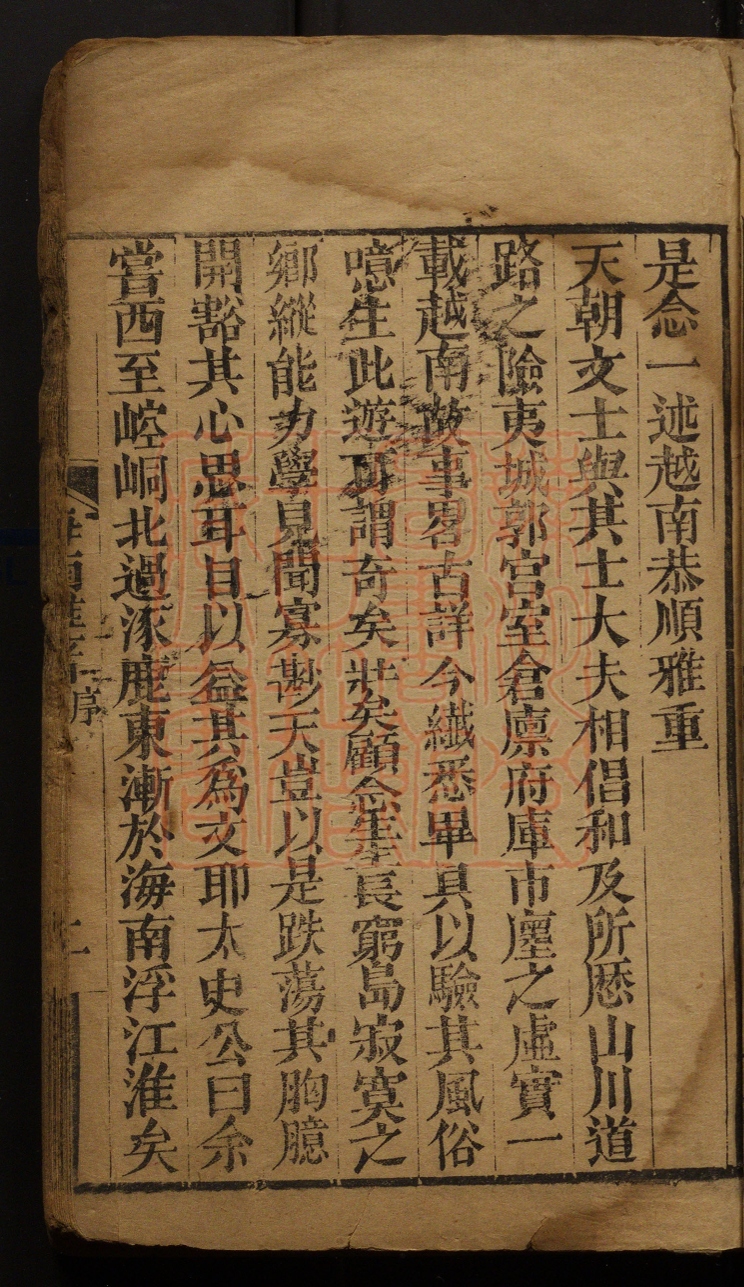 是念一述越南恭順雅重
天朝文士與其士大夫相倡和及所歷山川道
路之險夷城郭宮室倉廪府庫市廛之虛實一
載越南故事畧古詳今纖悉畢具以驗其風俗
噫生此遊可謂奇矣壯矣顧念生生長窮島寂寞之
鄉縱能力學見聞寡尠天豈以是跌蕩其胸臆
開豁其心思耳目以益其爲文耶太史公曰余
嘗西至崆峒北過涿鹿東漸於海南浮江淮矣
海南雜著 序
二